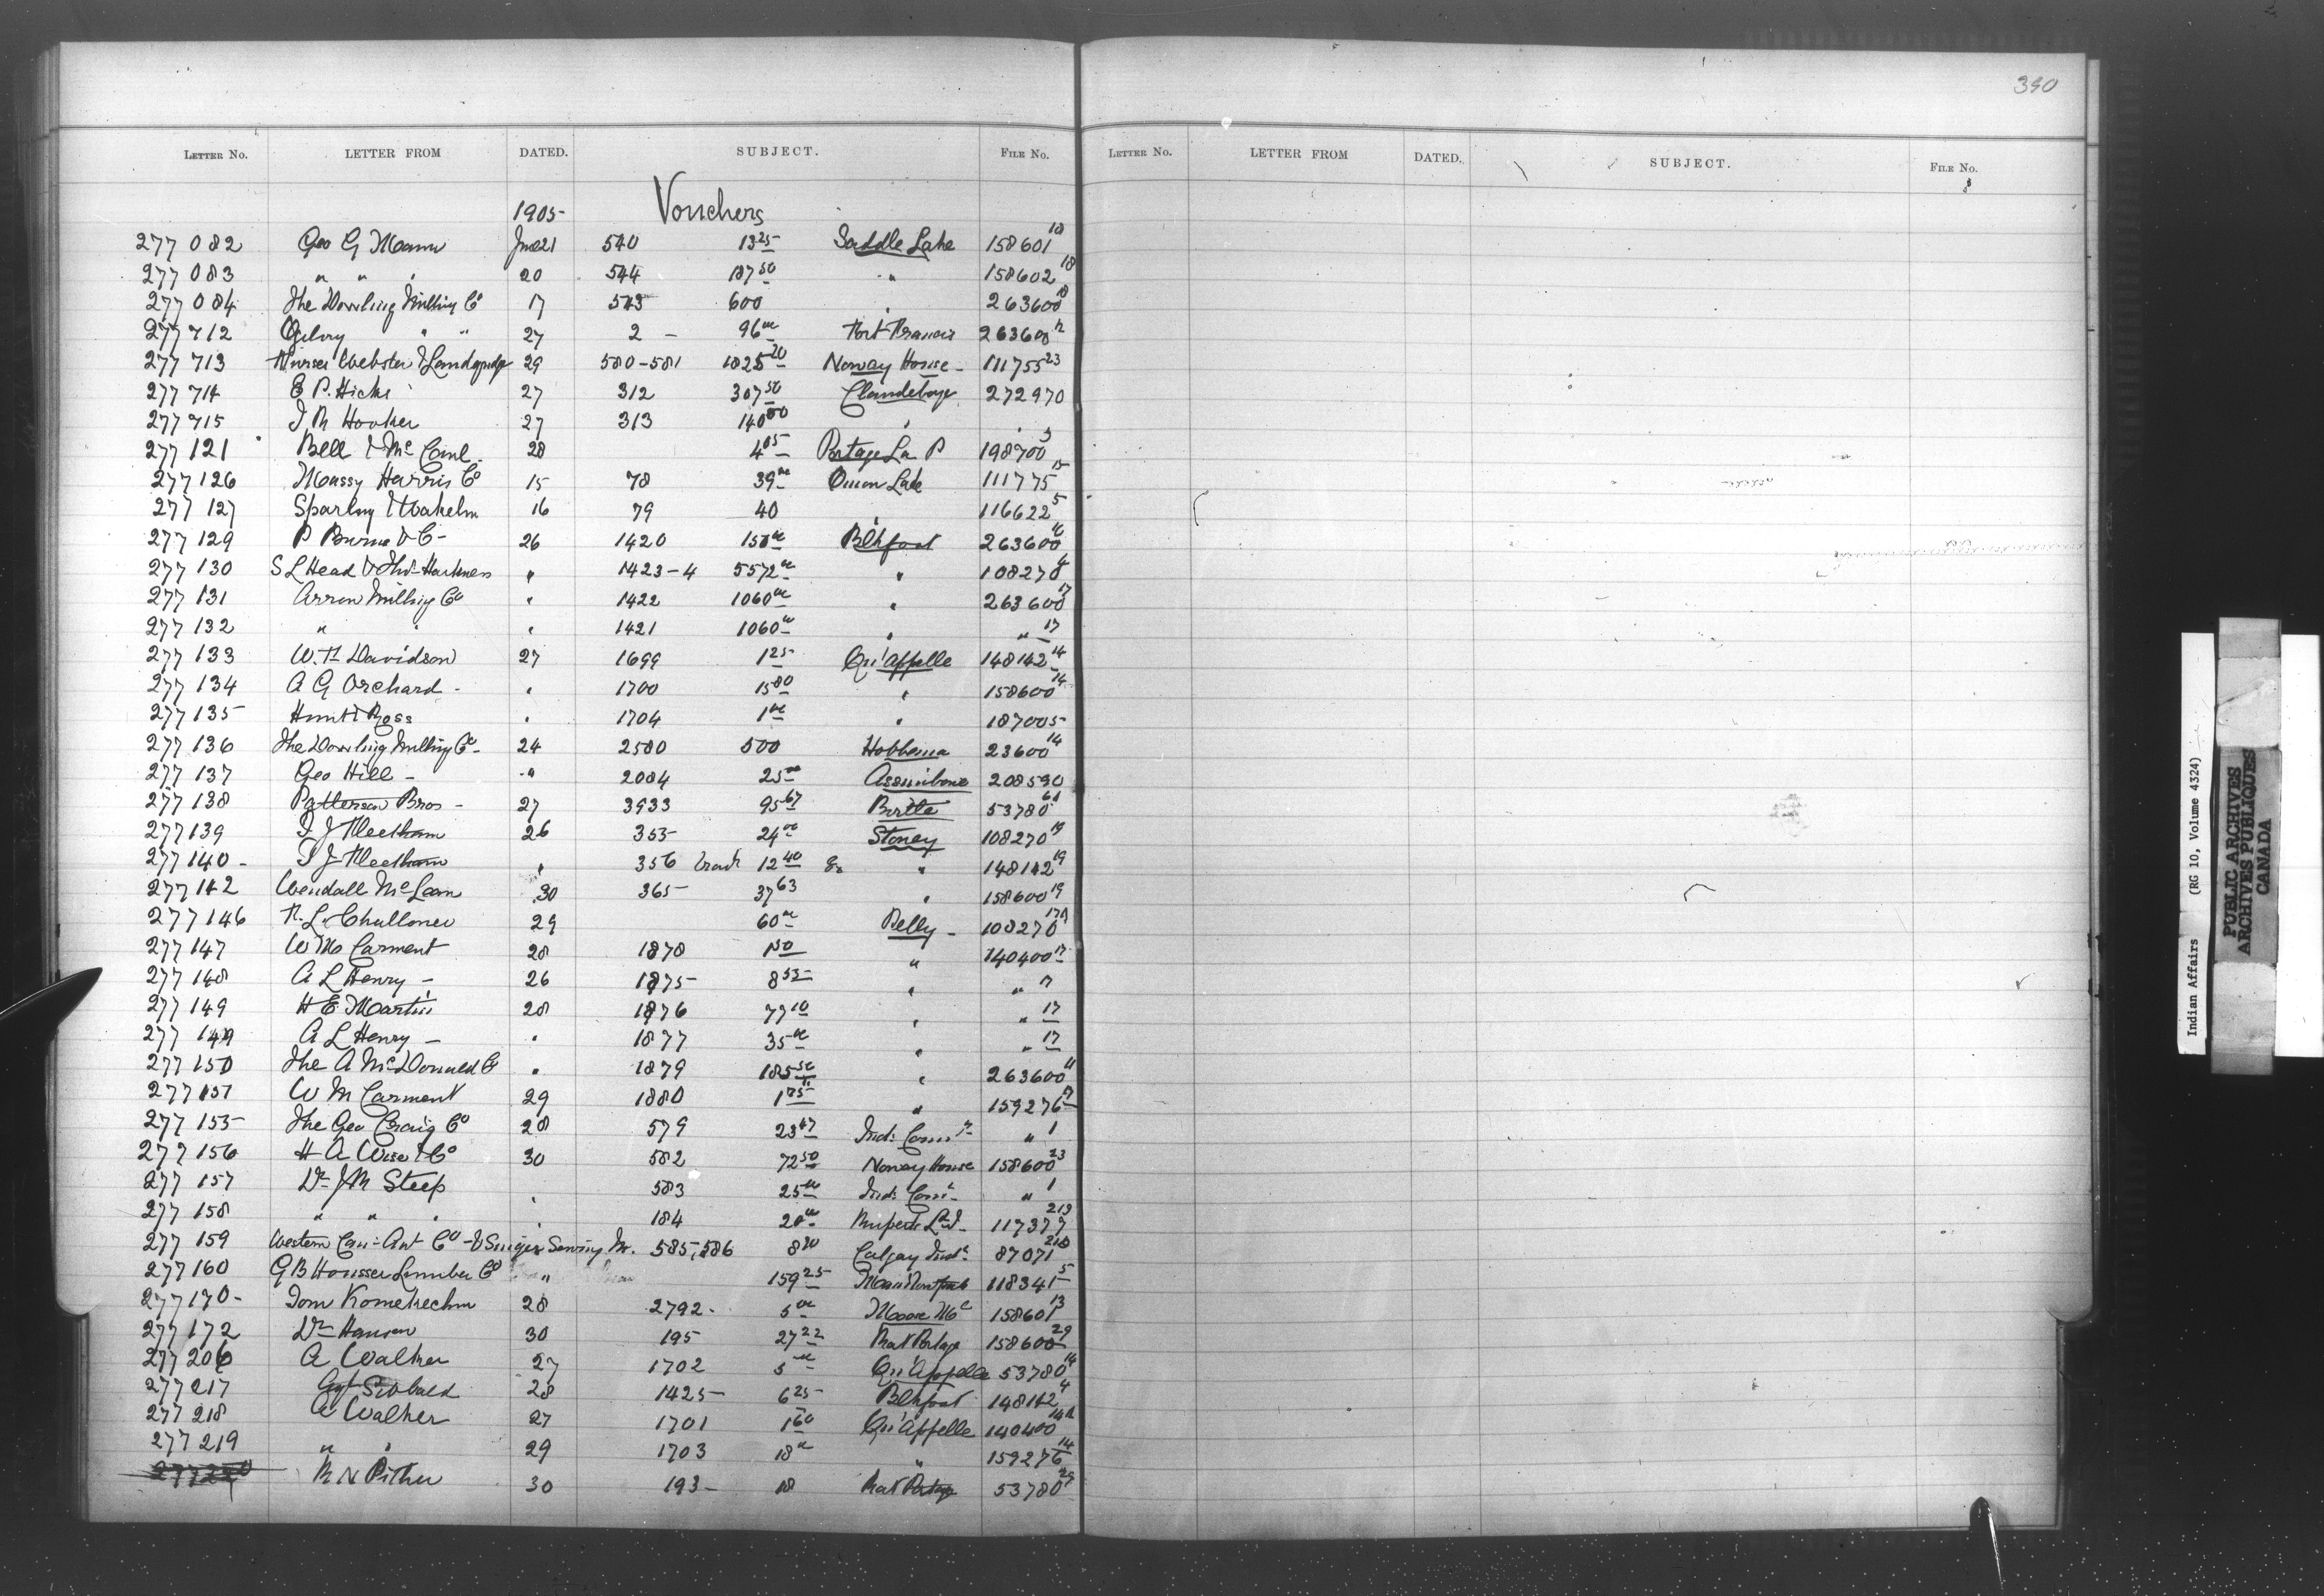 390
LETTER NO. LETTER FROM DATED. SUBJECT. FILE NO. LETTER NO. LETTER FROM DATED. SUBJECT. FILE NO.
1905 Vouchers
277 082 Geo G Mann June 21 540 13 25 Saddle Lake 158601 18
277 083 " " " 20 544 187 50 " 158602 18
277 084 The Dowling Milling Co 17 543 600 " 263600 18
277 712 Ogilvy " " 27 2 - 96 00 Fort Francis 263600 12
277 713 Webster & 29 580-581 1825 20 Norway House - 111755 23
277 714 E P. Hicks 27 312 307 50 Clandeboye 272970
277 715 J R Hooker 27 313 140 00 " "
277 121 Bell & Mc 28 4 05 Portage La P 198700 3
277 126 Massy Harris Co 15 78 39 00 Onion Lake 111775 15
277 127 Sparling & 16 79 40 " 116622 5
277 129 P Burns & C - 26 1420 150 00 Blkfoot 263600
277 130 S L Head & Harkness " 1423-4 5572 00 " 108270 4
277 131 Arrow Milling Co " 1422 1060 00 " 263600 17
277 132 " " " 1421 1060 00 " " 17
277 133 W. H Davidson 27 1699 1 25 Qu'Appelle 148142 14
277 134 A G Orchard - " 1700 15 80 " 158600 14
277 135 Hunt & Ross " 1704 1 00 " 187005
277 136 The Dowling Milling Co - 24 2580 500 Hobbema 23600 14
277 137 Geo Hill - " 2084 25 00 Assinibone 208590
277 138 Patterson Bros - 27 3933 95 67 Birtle 53780 61
277139 J J 26 355 24 00 Stoney 108270 19
277 140 - J J " 356 12 40 " 148142 19
277 142 Wendall McLean 30 365 37 63 " 158600 19
277 146 R. L. Challoner 29 60 00 Pelly - 108270 17A
277 147 W M Carment 28 1878 1 50 " 140400 17
277 148 A L Henry - 26 1875 8 55 " " 17
277 149 H E Martin 28 1876 77 10 " " 17
277 149 A L Henry - " 1877 35 00 " " 17
277 150 The A McDonald Co " 1879 185 50 " 263600 11
277 151 W M Carment 29 1880 1 75 " 159276 17
277 155 The Geo Craig Co 28 579 23 47 Ind: Comr - " 1
277 156 H A Wise & Co 30 582 72 50 Norway House 158600 23
277 157 Dr J M Steep " 583 25 00 Ind: Comr - " 1
277 158 " " " " 184 20 00 Ruperts Ld I - 117377 213
277 159 Western Can: Co - & Singer Sewing M. 585, 586 8 20 Calgary Ind: 87071
277 160 G B Housser Lumber Co " 159 25 118341 5
277 170 - Tom 28 2792 - 5 00 Moose Mt 158601 13
277 172 Dr Hanson 30 195 27 22 Rat Portage 158600 29
277 206 A Walker 27 1702 5 00 Qu'Appelle 53780 14
277 217 Sibbald 28 1425 6 25 Blkfoot 148142 4
277 218 A Walker 27 1701 1 60 Qu'Appelle 140400 14A
277 219 " " 29 1703 18 00 " 159276 14
277220 R N Pither 30 193 - 18 Rat Portage 53780 29
Indian Affairs (RG 10, Volume 4324)
PUBLIC ARCHIVES
ARCHIVES PUBLIQUES
CANADA